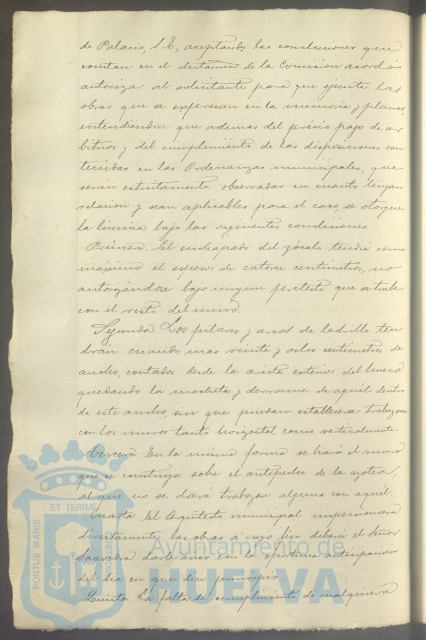 de Palacio, S.E., aceptando las conclusiones que
constan en el dictamen de la Comision acordó
autorizar al solicitante para que ejecute las
obras que se expresan en la memoria y planos,
entendiendose que ademas del previo pago de ar
bitrios y del cumplimiento de las disposiciones con
tenidas en las Ordenanzas municipales, que
serán estrictamente observadas en cuanto tengan
relacion y sean aplicables para el caso, se otorgue
la licencia bajo las siguientes condiciones.
Primera. El enchapado del zócalo tendrá como
máximo el espesor de catorce centímetros, no
autorizándose bajo ningun pretesto que se trabe
con el resto del muro.
Segunda. Los pilares y arcos de ladrillo ten
drán cuando mas veinte y ocho centímetros de
ancho, contados desde la arista exterior del hueco
quedando la mocheta y derrame de aquél dentro
de este ancho, sin que puedan establecerse trabazones
con los muros tanto horizontal como verticalmente.
Tercera. En la misma forma se hará el muro
que se construya sobre el antepecho de la azotea,
al que no se dará trabazon alguna con aquel.
Cuarta. El Arquitecto municipal inspeccionará
directamente las obras a cuyo fin deberá el Señor
Saavedra darle aviso con la oportuna anticipacion
del dia en que den principio.
Quinta. La falta de cumplimiento de cualquiera
PORTUS MARIS ET TERRAE
Ayuntamiento de
HUELVA